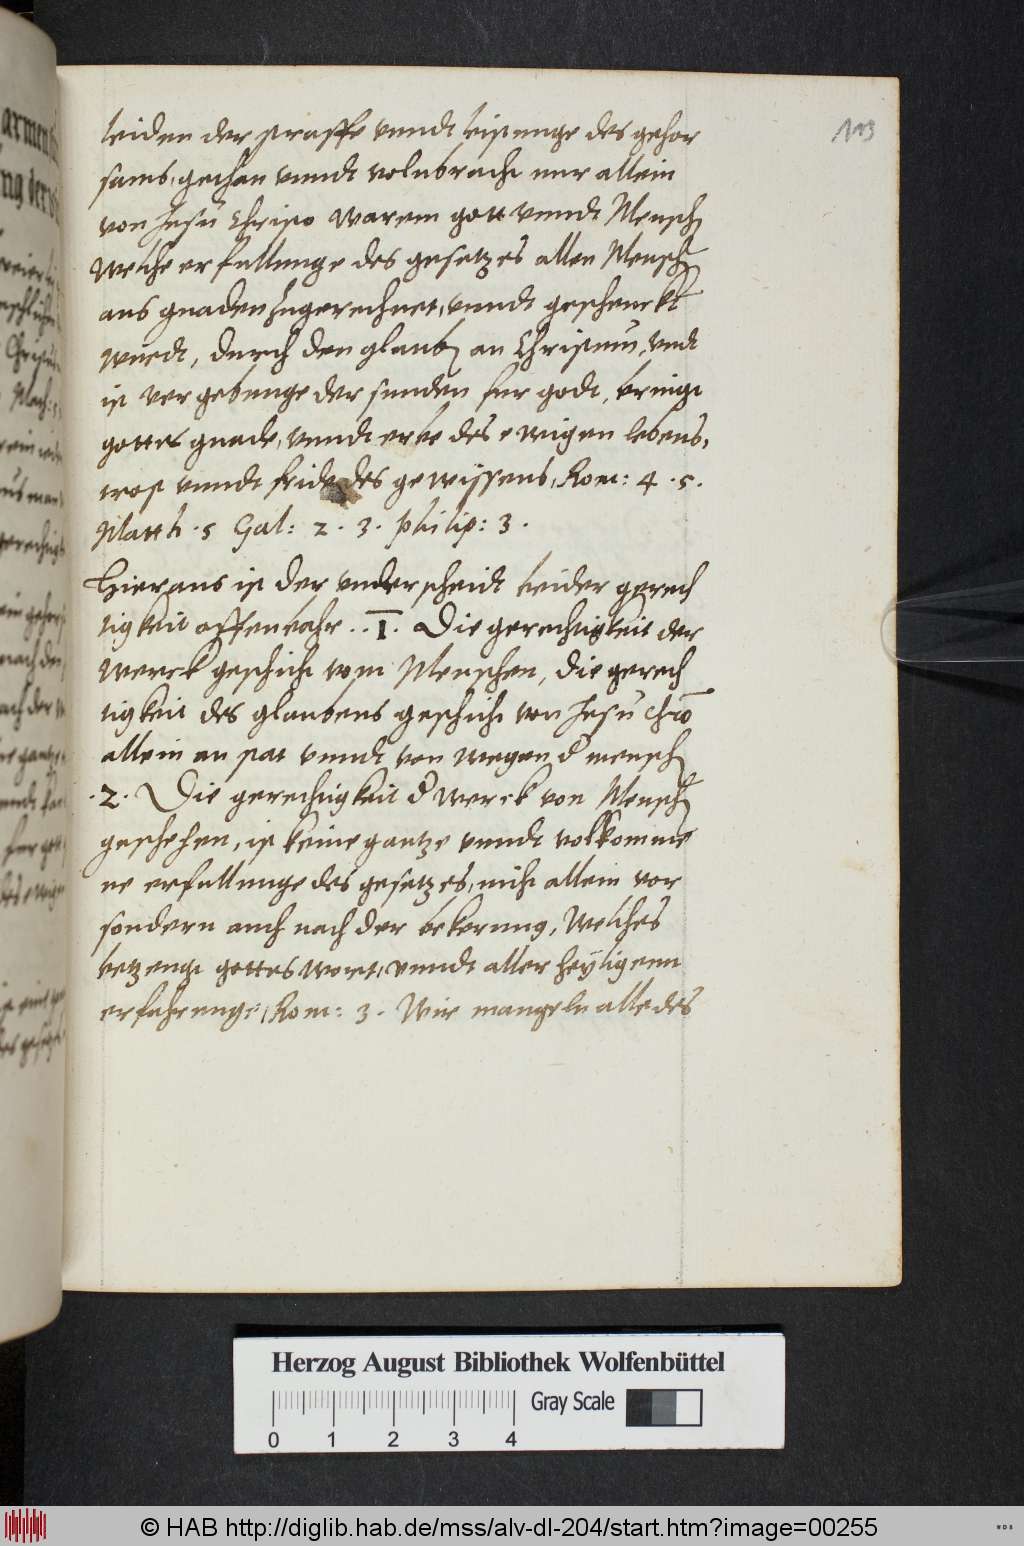 113
leiden der straffe vnndt leistunge des gehor
sams, gethan vnndt volnbracht nur allein
von Jesu Christo warem gott vnndt Mensch
Welche erfullunge des gesetzes allen Mensch
aus gnaden zugerechnet, vnndt geschenckt
wirdt, durch den glaub an Christum, vndt
ist vergebunge der sunden fur godt, bringt
gottes gnade, vnndt erbe des ewigen lebens,
trost vnndt fride des gewissens, Rom: 4 . 5.
Matth . 5 Gal: 2 . 3. philip: 3 .
Hieraus ist der vnderscheidt beider gerech
tigkeit offenbahr . . I . Die gerechtigkeit der
werck geschicht vom Menschen, die gerech
tigkeit des glaubens geschicht von Jesu Christo
allein an stat vnndt von wegen d mensch
. 2 . Die gerechtigkeit d werck von Mensch
geschehen, ist keine gantze vnndt volkomme
ne erfullunge des gesetzes, nicht allein vor
sondern auch nach der bekerung, Welches
betzeugt gottes wort, vnndt aller heyligenn
erfahrunge, Rom: 3 . Wir mangeln alle des
Herzog August Bibliothek Wolfenbüttel
Gray Scale
0 1 2 3 4
© HAB http://diglib.hab.de/mss/alv-dl-204/start.htm?image=00255